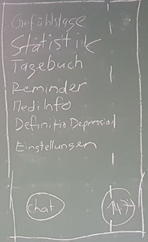 Gefühlslage
Statistik
Tagebuch
Reminder
MediInfo
Definitio Depression
Einstellungen
Chat